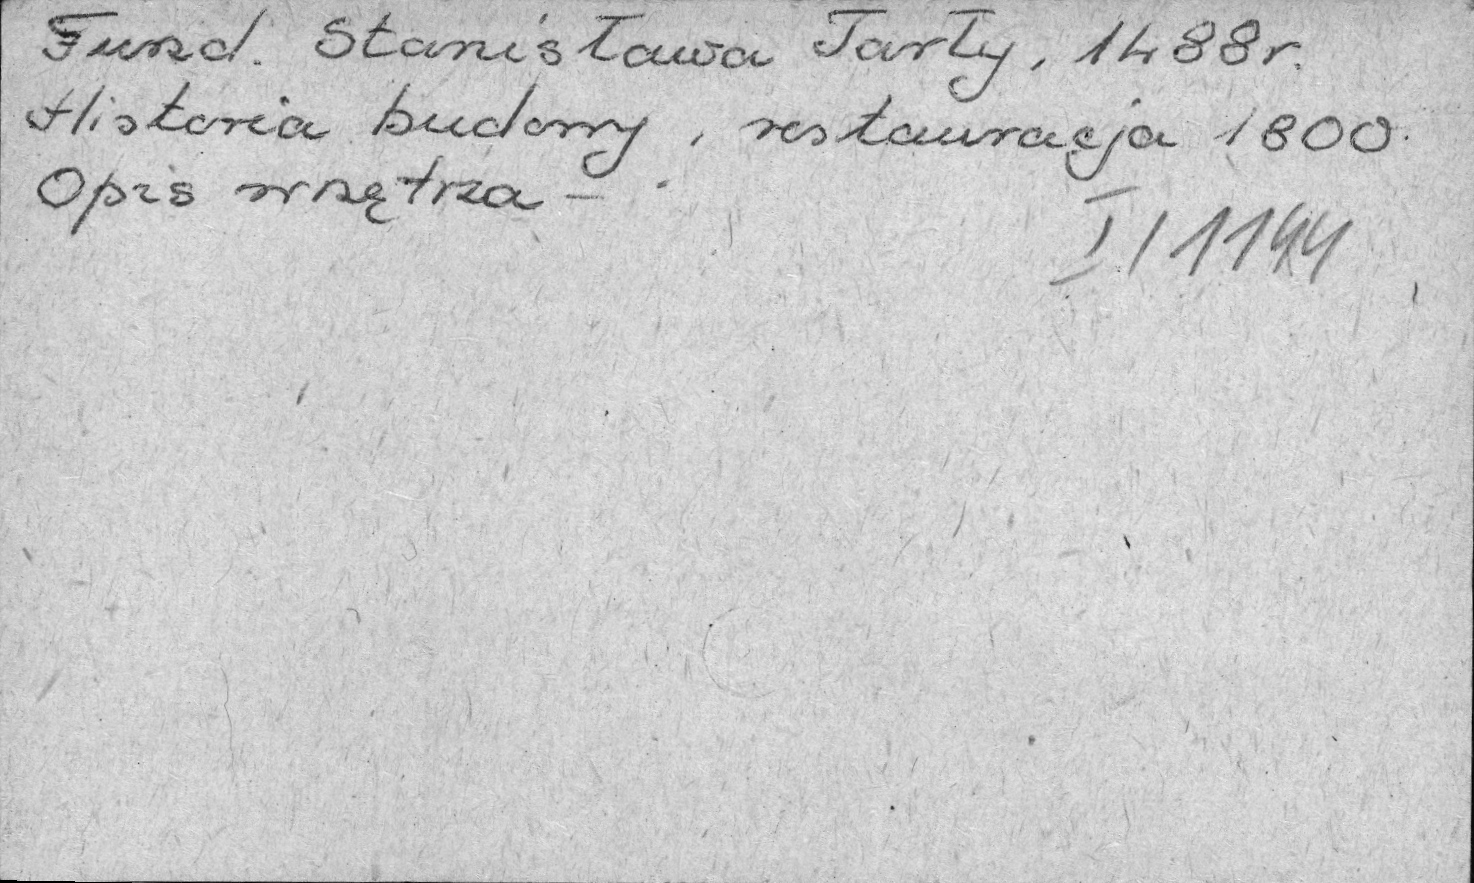 Fund. Stanisława Tarły, 1488r.
Historia budowy, restauracja 1800.
Opis wnętrza –
I/1144